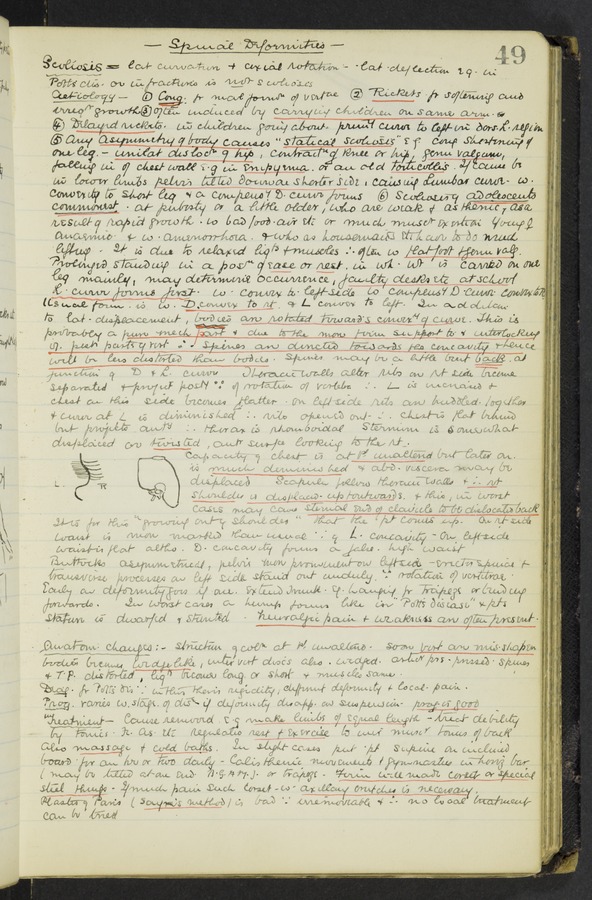 49
— Spinal Deformities —
Scoliosis = lat curvation + axial rotation - lat deflection e.g. in
Potts dis. or in fractures is not scoliosis
Aetiology - ① Cong. fr mal formn of vertae ② Rickets fr softening and
irregr growth ③ often induced by carrying children on same arm
④ Delayed rickets. in children going about. primy curve to left in dors. l. region
⑤ Any asymmetry of body causes "statical scoliosis" e.g. cong shortening of
one leg. - unilat dislocn of hip, contractn of knee or hip, genu valgum,
falling in of chest wall e.g. in Empyema. or an old torticollis. If cause be
in lower limbs pelvis tilted downwds shorter side, causing lumbar curve. w.
convexity to short leg & a compensy D. curve forms ⑥ Scoliosis of adolescents
commonest. at puberty or a little older, who are weak & asthenic, as a
result of rapid growth. w. bad food. air etc or much musct exertion of young
anaemic & w. amenorrhoea. & who as housemaids etc have to do much
lifting. It is due to relaxed ligts & muscles ∴ often w. flat foot & genu valg.
Prolonged standing in a posn of ease or rest, in wh. wt is carried on one
leg mainly, may determine occurrence, faulty desks etc at school
L. curve forms first. w. convex to left side w. compensy D. curve convex to R
Usual form is w. D. convex to rt & L convex to left. In addition
to lat. displacement, bodies are rotated towards convexy of curve. This is
probably a pure mech part & due to the more firm support to & interlocking
of post parts of vert ∴ Spines are directed towards the concavity & hence
will be less distorted than bodies. Spines may be a little bent back, at
junction of D & L. curve Thoracic walls alter ribs on rt side become
separated & project posty ∵ of rotation of vertebs ∴ L is increased &
chest on this side becomes flatter. On left side ribs are huddled together
& curve at L is diminished ∴ ribs opened out ∴ chest is flat behind
but projects anty ∴ thorax is rhomboidal Sternum is somewhat
displaced or twisted, ant surface looking to the rt.
Capacity of chest is at 1st unaltered but later on
is much diminished & abd. viscera may be
displaced Scapula follows thoracic walls & ∴ rt
L. R
shoulder is displaced up & outwards. & this, in worst
cases may cause sternal end of clavicle to be dislocated back
It is for this "growing out of shoulder" that the pt comes up. On rt side
waist is more marked than usual ∵ of L. concavity. On left side
waist is flat altho. D. concavity forms a false high waist
Buttocks asymmetrical, pelvis more prominent on left side - erector spinae &
transverse processes on left side stand out unduly. ∵ rotation of vertebrae.
Early on deformity goes if one. Extend trunk. e.g. hanging fr trapeze or bending
forwards. In worst cases a hump forms like in Potts disease & pts
stature is dwarfed & stunted. Neuralgic pain & weakness are often present.
Anatom. changes:- structure of vert at 1st unaltered. soon vert are mis-shapen
bodies become wedgelike, intervert discs also. wedged. articr prs. pressed. spines
& T.P. distorted, ligts become long or short & muscles same.
Diag. fr Potts dis ∵ in this there is rigidity, different deformity & local pain.
Prog. varies w. stage of dis. if deformity disapp. on suspension. prog is good
Treatment - Cause removed e.g. make limbs of equal length - treat debility
by tonics. Fe. As. etc regulated rest & exercise to incr muscr tone of back
Also massage & cold baths. In slight cases put pt supine on inclined
board for an hr or two daily - Calisthenic movements & gymnastics w. horiz bar,
(may be tilted at one end) or trapeze. Firm well made corset or special
steel things. If much pain such corset w. axillary crutches is necessary.
Plaster of Paris (Sayre's method) is bad ∵ irremovable & ∴ no local treatment
can be tried